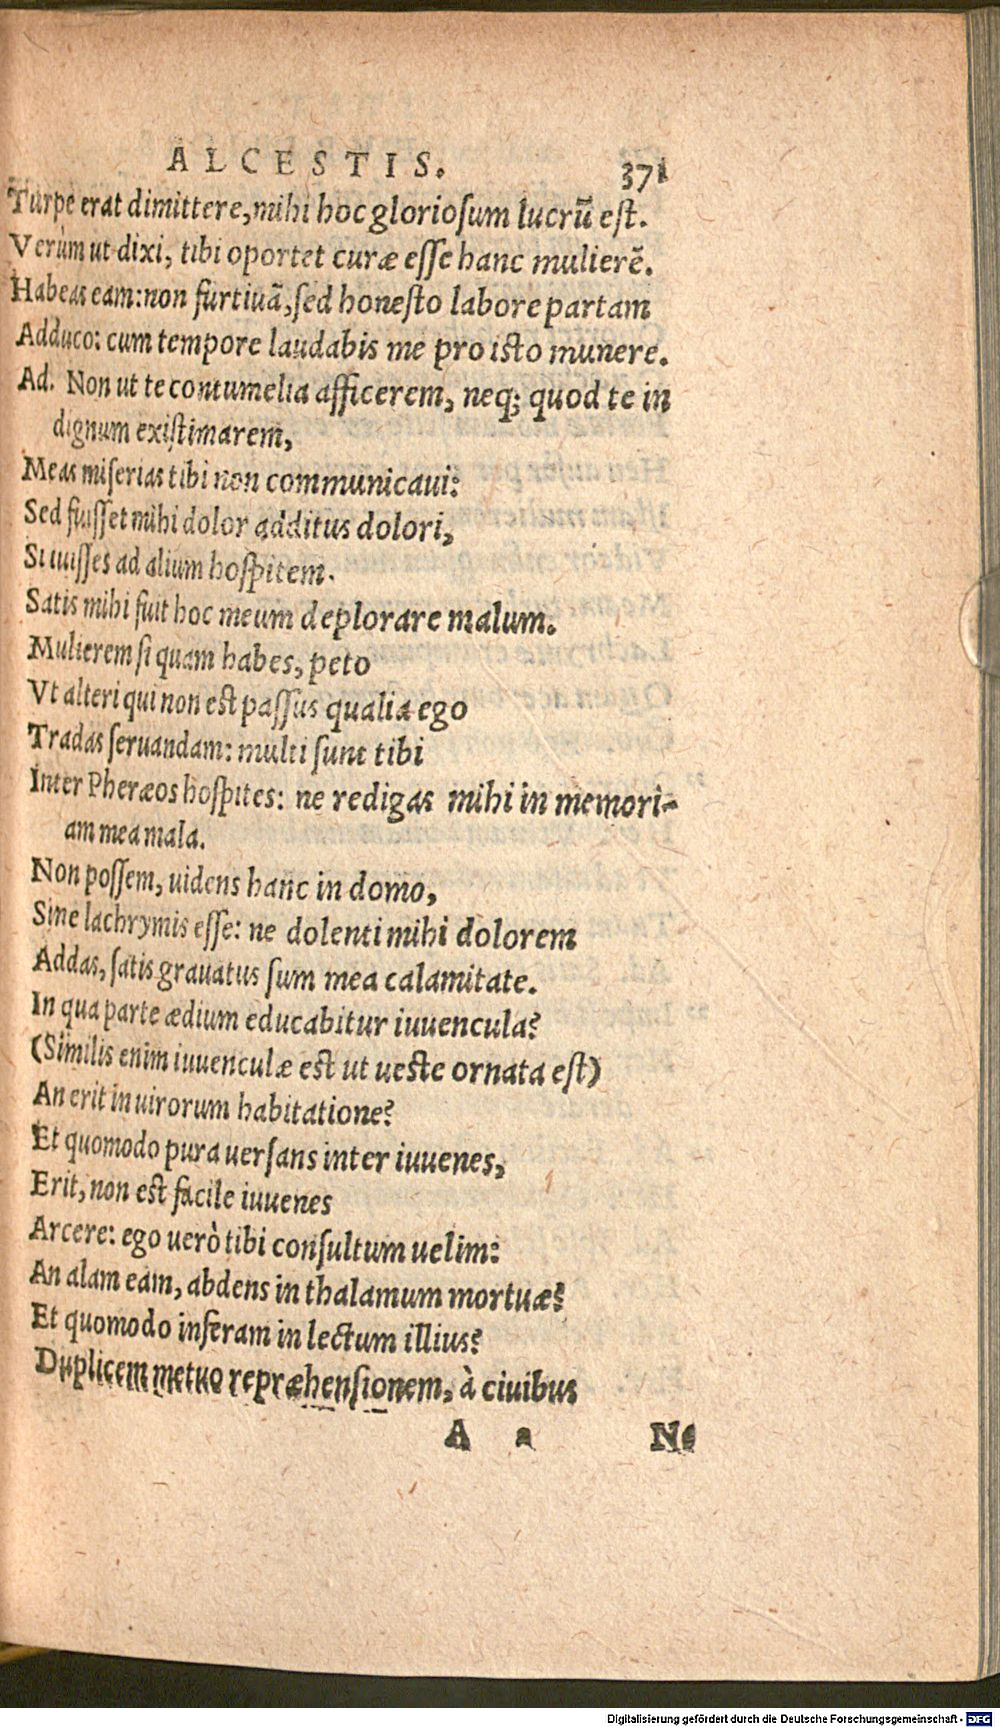 ALCESTIS. 371
Turpe erat dimittere, mihi hoc gloriosum lucrũ est.
Verùm ut dixi, tibi oportet curæ esse hanc mulierẽ.
Habeas eam: non furtiuã, sed honesto labore partam
Adduco: cum tempore laudabis me pro isto munere.
Ad. Non ut te contumelia afficerem, neq; quod te in
dignum existimarem,
Meas miserias tibi non communicaui:
Sed fuisset mihi dolor additus dolori,
Si iuisses ad alium hospitem.
Satis mihi fuit hoc meum deplorare malum.
Mulierem si quam habes, peto
Vt alteri qui non est passus qualia ego
Tradas seruandam: multi sunt tibi
Inter Pheræos hospites: ne redigas mihi in memori-
am mea mala.
Non possem, uidens hanc in domo,
Sine lachrymis esse: ne dolenti mihi dolorem
Addas, satis grauatus sum mea calamitate.
In qua parte ædium educabitur iuuencula?
(Similis enim iuuenculæ est ut ueste ornata est)
An erit in uirorum habitatione?
Et quomodo pura uersans inter iuuenes,
Erit, non est facile iuuenes
Arcere: ego uerò tibi consultum uelim:
An alam eam, abdens in thalamum mortuæ?
Et quomodo inferam in lectum illius?
Duplicem metuo repræhensionem, à ciuibus
A a Ne
Digitalisierung gefördert durch die Deutsche Forschungsgemeinschaft - DFG